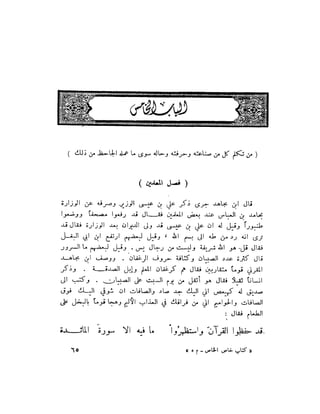 الباب الخامس
( من تكلم كل من صناعته وحرفته وحاله سوى ما عمله الجاحظ من ذلك )
( فصل المعلمين )
قال ابن مجاهد جرى ذكر علي بن عيسى الوزير وصرفه عن الوزارة
بمحامد بن العباس عند بعض المعلمين فقـــال قد رفعوا مصحفاً ووضعوا
طنبوراً وقيل له ان علي بن عيسى قد ولى الديوان بعد الوزارة فقال قد
ترى انه رد من طه الى بسم الله ، وقيل لبعضهم ارتفع ابن ابي البغـل
فقال قل هو الله شريفة وليست من رجال يس . وقيل لبعضهم ما السرور
قال كثرة عدد الصبيان وكثافة حروف الرغفان . ووصف ابن مجاهـد
المقرئ قوماً متقاربين فقال هم كرغفان المعلم وإبل الصدقـــة . وذكر
انساناً ثقيلاً فقال هو أثقل من يوم السبت على الصبيان . وكتب الى
صديق له كهيعص اني اليك جد صاد والصافات ان شوقي اليـك فوق
الصافات والحواميم اني من فراقك في العذاب الأليم وهجا قوماً بالبخل على
الطعام فقال :
قد حفظوا القرآن واستظهروا ما فيه الا سورة المائـــدة
« كتاب خاص الخاص ـ م ٥ » ٦٥